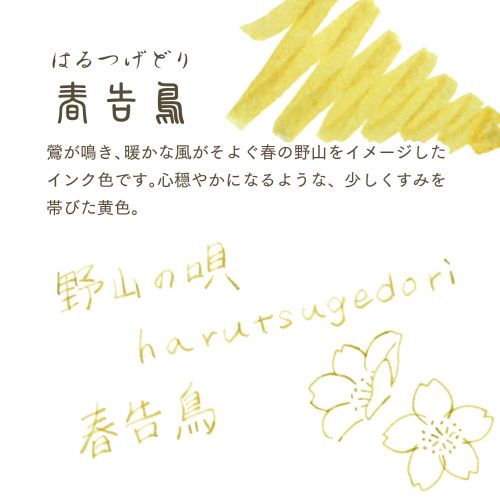 はるつげどり
春告鳥
鶯が鳴き、暖かな風がそよぐ春の野山をイメージした
インク色です。心穏やかになるような、少しくすみを
帯びた黄色。
野山の唄
harutsugedori
春告鳥